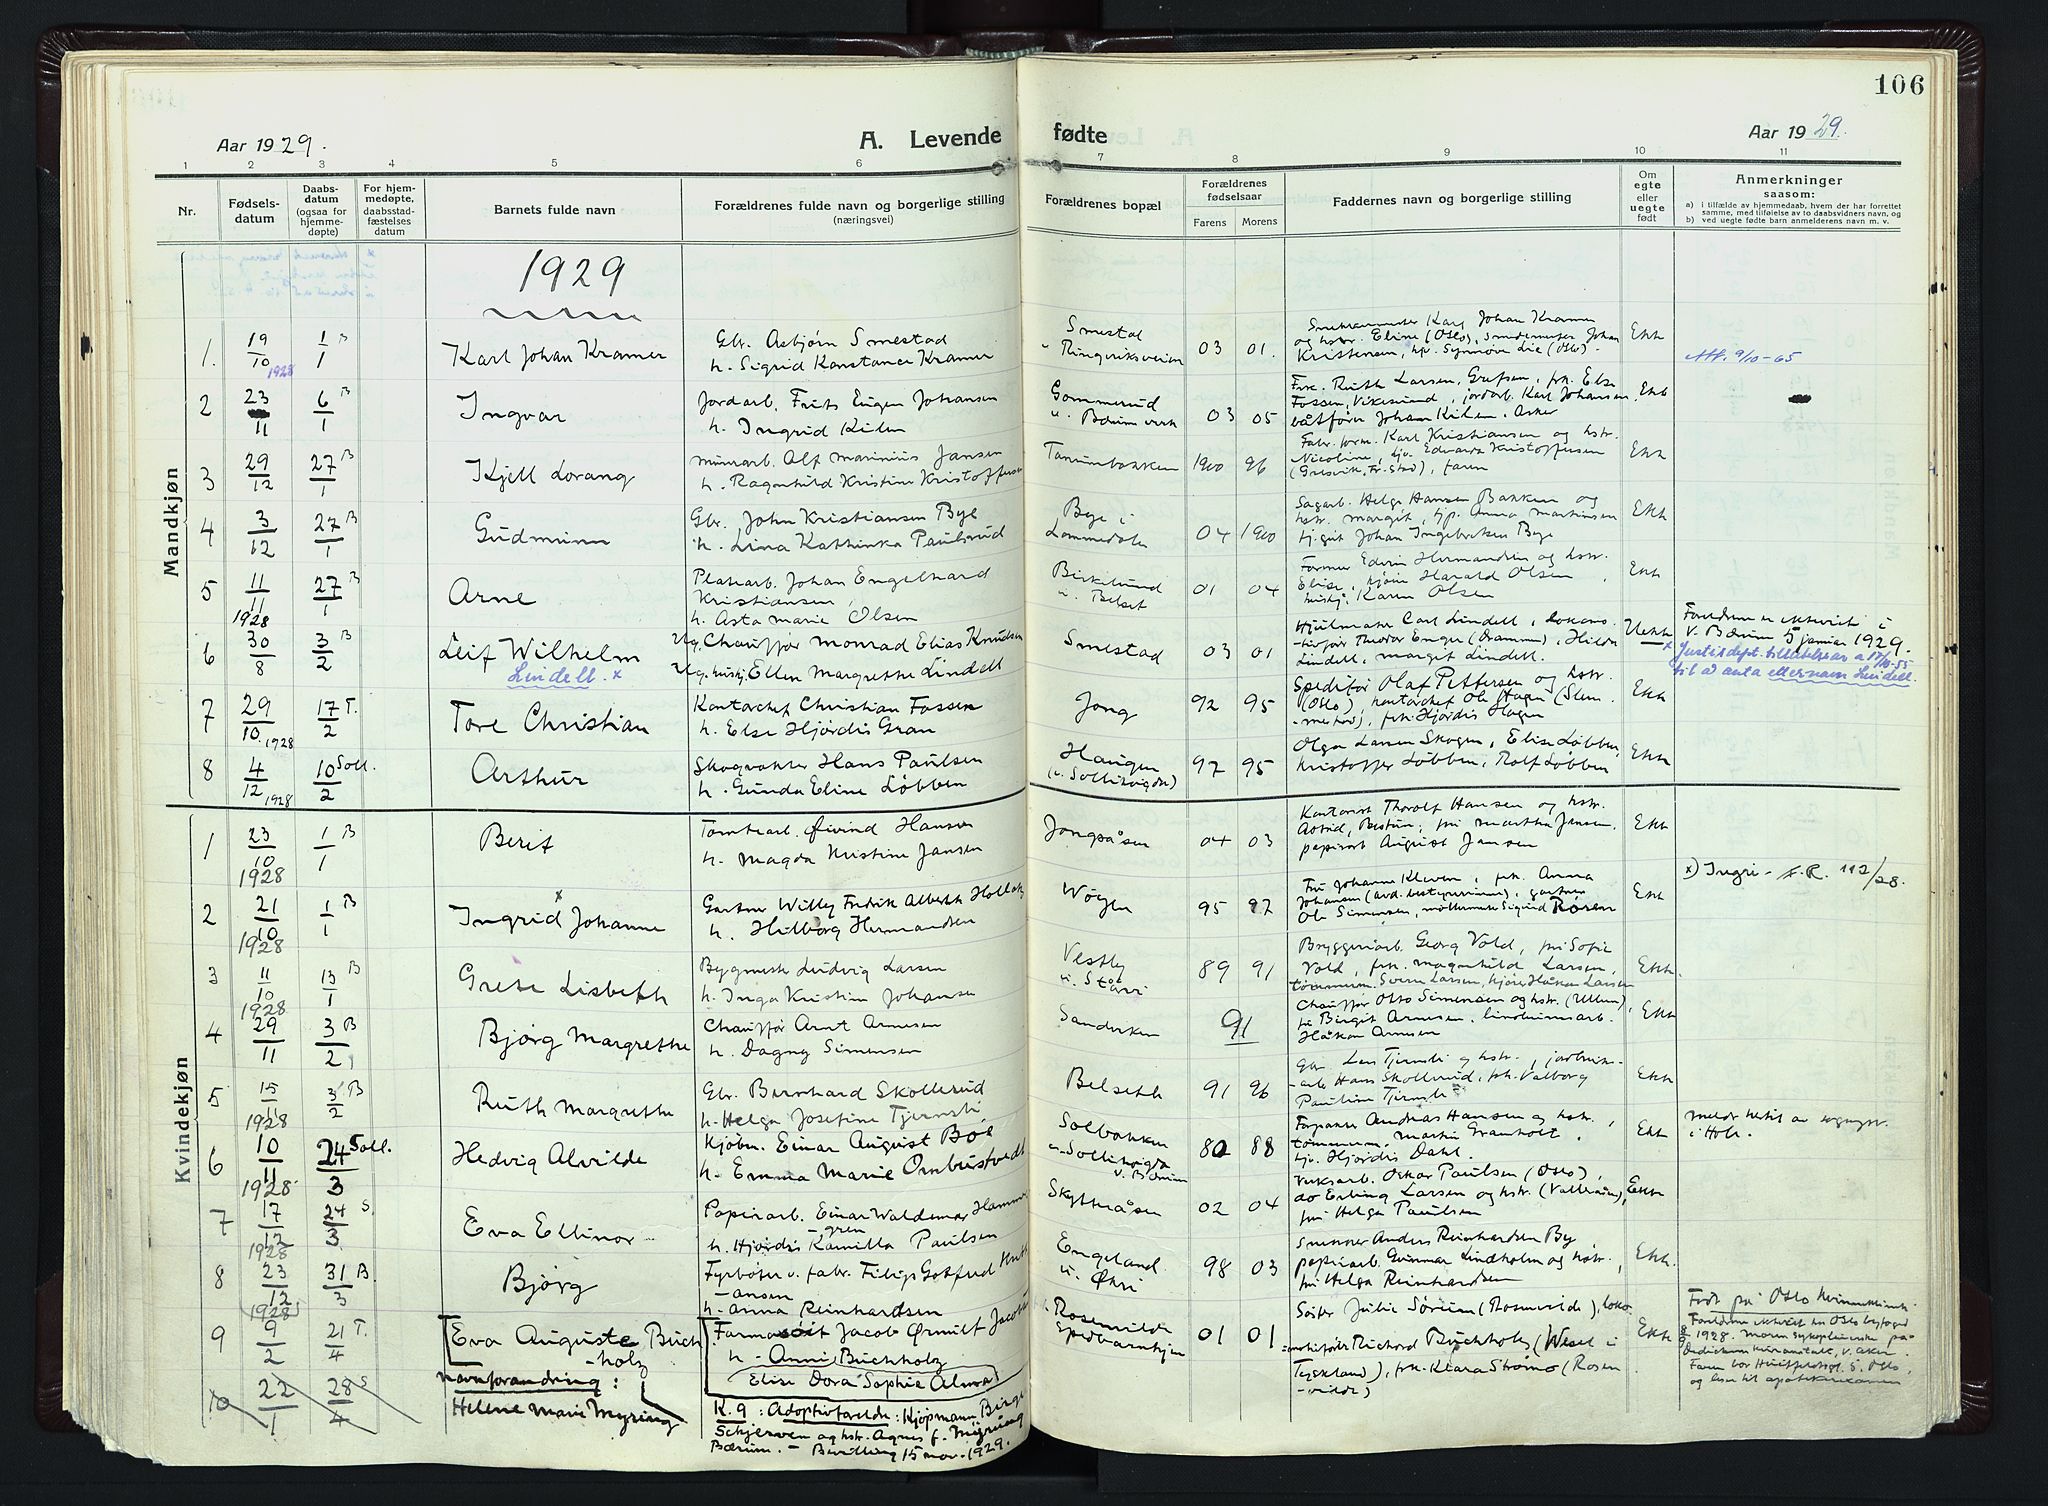 106
Aar 1929.
A. Levende fødte
Aar 1929.
1 2 3 4 5 6 7 8 9 10 11
Nr.
Fødsels-
datum
Daabs-
datum
(ogsaa for
hjemme-
døpte)
For hjem-
medøpte,
daabsstad-
fæstelses
datum
Barnets fulde navn
Forældrenes fulde navn og borgerlige stilling
(næringsvei)
Forældrenes bopæl
Forældrenes
fødselsaar
Farens Morens
Faddernes navn og borgerlige stilling
Om
egte
eller
uegte
født
Anmerkninger
saasom:
a) i tilfælde av hjemmedaab, hvem der har forrettet
samme, med tilføielse av to daabsvidners navn, og
b) ved uegte fødte barn anmelderens navn m. v.
1929
Mandkjøn
1. 19/10 1928 1/1 B Karl Johan Kramer
Gbr. Asbjørn Smestad
h. Sigrid Konstance Kramer
Smestad
Ringeriksveien
03 01.
Karl Johan Kramer
og hstr. Eline (Oslo), Johan
Kristensen, Lie (Oslo).
Ekte
Att. 9/10-65
2 23/11 6/1 B Ingvar
Jordarb. Frits Eugen Johansen
h. Ingrid Kilen
Gommerud
v. Bærum verk
03 05
Frk. Ruth Larsen, Grefsen, frk. Else
Fossen, Vikesund, jordarb. Karl Johansen,
båtfører Johan Kilen, Asker
Ekte
3 29/12 27/1 B Kjell Lorang
Murarb. Alf Marinius Jansen
h. Ragnhild Kristine Kristoffersen
Tanumbakken
1900 96
Fabr. form. Karl Kristiansen og hstr.
Nicoline, Edvarda Kristoffersen
(Gresvik, Fr.stad), faren
Ekte
4 3/12 27/1 B Gudmunn
Gbr. John Kristiansen Bye
h. Lina Kathinka Paulsrud
Bye i
Lommedalen
04 1900
Sagarb. Helge Hansen Bakken og
hstr. Margit, Anna Martinsen
Johan Ingebretsen Bye
Ekte
5 11/11 1928 27/1 B Arne
Platearb. Johan Engelhard
Kristiansen,
h. Asta Marie Olsen
Birkelund
v. Belset
01 04
Former Edvin Hermandsen og hstr.
Elise, Harald Olsen,
Karen Olsen
Ekte
6 30/8 3/2 B Leif Wilhelm
Lindell. x
Ug. Chauffør Monrad Elias Knudsen
Ug. huskj. Ellen Margrethe Lindell
Smestad
03 01
Hjulmaker Carl Lindell, lokomo-
tivfør Theodor Enger (Drammen), Hilda
Lindell, Margit Lindell.
Uekte
Foreldrene er ektevied i
V. Bærum 5 januar 1929.
x Justisdept. tillatelse av 17/10-55
til å anta etternavn Lindell.
7 29/10 1928 17/2 T. Tore Christian
Kontorchef Christian Fossen
h. Else Hjørdis Gran
Jong
92 95
Speditør Olaf Pettersen og hstr.
(Oslo), kontorchef Ole Hagen (Slem-
-mestad), frk. Hjørdis Hagen
Ekte
8 4/12 1928 10/2 Soll. Arthur
Skogvokter Hans Paulsen
h. Gunda Eline Løbben
Haugen
(v. Sollihøgda)
97 95
Olga Larsen Skogen, Elise Løbben,
Kristoffer Løbben, Rolf Løbben
Ekte
Kvindekjøn
1 23/10 1928 1/1 B Berit
Tomtearb. Øivind Hansen
h. Magda Kristine Jansen
Jongsåsen
04 03
Kontorist Thorolf Hansen og hstr.
Astrid, Bestum, fru Martha Jansen,
papirarb. August Jansen
Ekte
2 21/10 1928 1/1 B Ingrid x Johanne
Gartner Willy Fredrik Alberth
h. Hilborg Hermandsen
Wøyen
95 97
Fru Johanne Kleven, frk. Anna
Johansen (avd. bestyrerinne), gartner
Ole Simensen, Sigurd Røren
Ekte
x) Ingri - K.R. 112/28.
3 11/10 1928 13/1 B Grete Lisbeth
Bygmester Ludvig Larsen
h. Inga Kristine Johansen
Vestby
v. Stavi
89 91
Bryggeriarb. Georg Vold, fru Sofie
Vold, frk. Magnhild Larsen,
tømmerm. Sverre Larsen, Håkon Larsen
Ekte.
4 29/11 3/2 B Bjørg Margrethe
Chauffør Arnt Arnesen
h. Dagny Simensen
Sandviken
91
Chauffør Otto Simensen og hstr. (Ullern),
fru Birgit Arnesen, linoleumsarb.
Håkon Arnesen
Ekte
5 15/11 1928 3/2 B Ruth Margrethe
Gbr. Bernhard Skollerud
h. Helga Josefine Tjernsli
Belseth
91 96
Gbr. Lars Tjernsli og hstr.,
Hans Skollerud, frk. Valborg
Pauline Tjernsli
Ekte
6 10/11 1928. 24/3 Soll. Hedvig Alvilde
Kjøbm. Einar August Bøe
h. Emma Marie Ombustvedt
Solbakken
Sollihøgda
v. Bærum
80 88
Andreas Hansen og hstr.,
tømmerm. Martin Granholt,
Hjørdis Dahl.
Ekte
i Hole.
7 17/12 1928 24/3 S. Eva Ellinor
Papirarb. Einar Waldemar Hammer-
-gren
h. Hjørdis Kamilla Paulsen
Skytteråsen
02 04
Verksarb. Oskar Paulsen (Oslo),
do Erling Larsen og hstr.
fru Helga Paulsen
Ekte
8 23/12 (1928) 31/3 B. Bjørg
Fyrbøter v. fabr. Filip Gotfred
-ansen
h. Anna Reinhardsen
Engeland
v. Øvri
98 03
Snekker Anders Reinhardsen By,
papirarb. Gunnar Lindholm og hstr.,
fru Helga Reinhardsen
Ekte.
9 9/2 21/4 T. Eva Auguste Buch-
-holz
navneforandring:
Helene Marie Myring
Farmasöit Jacob Ørnulf
h. Anni Buchholz
(Elise Dora Sophie Alma)
Rosenvilde
Spedbarnhjem
01 01
Søster Julie Sørum (Rosenvilde),
Richard Buchholz (Wesel i
Tyskland), frk. Klara Strømø (Rosen-
-vilde)
Ekte
Født på Oslo Kvinneklinik.
Foreldrene ektevied hos Oslo byfoged
8/9 1928.
v. Aker.
10 22/1 28/4 S
K. 9: Adoptivforeldre: Kjøpmann Birger
Schjerven og hstr. Agnes f. Myring
Bærum. - Bevilling 15 nov. 1929.